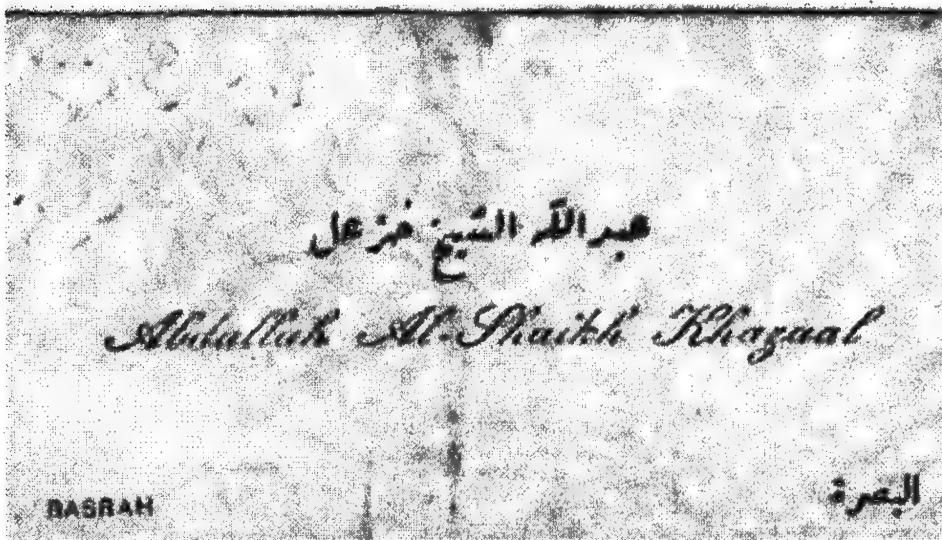 عبد الله الشيخ خزعل
Abdullah Al-Shaikh Khazaal
BASRAH
البصرة